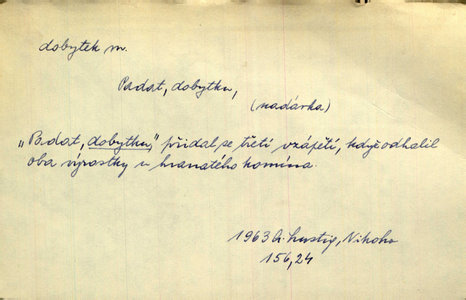 dobytek m.
Padat, dobytku,
(nadávka)
„Padat, dobytku," přidal se třetí vzápětí, když odhalil
oba výrostky u hranatého komína.
1963 A. Lustig, Nikoho
156,24